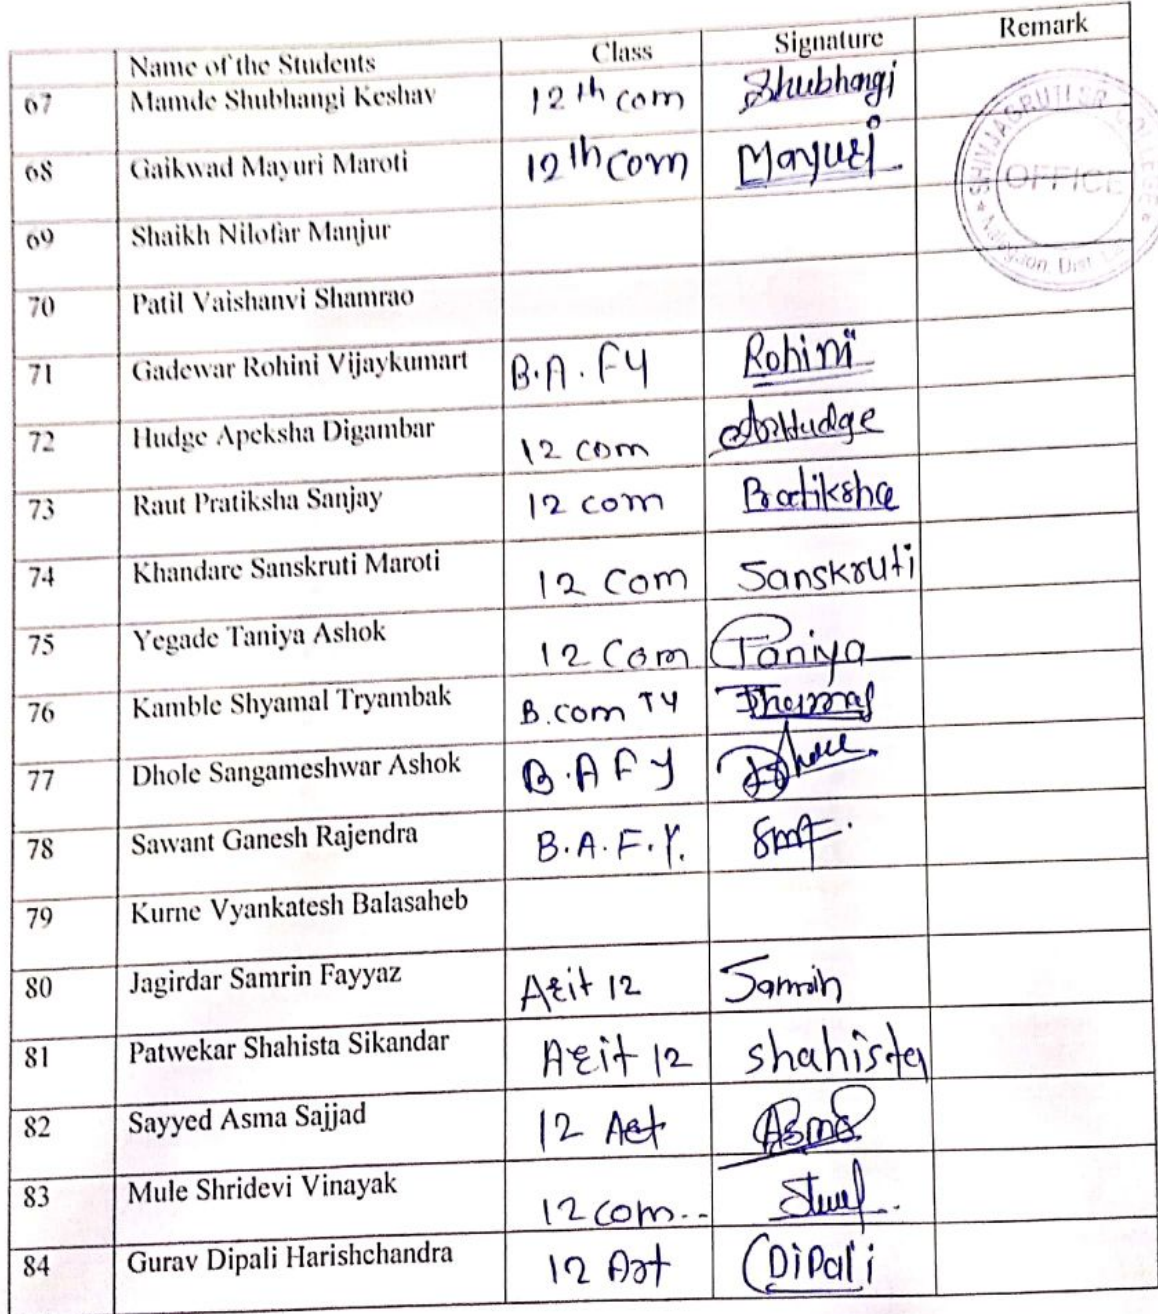 Name of the Students Class Signature Remark
67 Mamde Shubhangi Keshav 12th com Shubhangi
68 Gaikwad Mayuri Maroti 12th Com Mayuri
69 Shaikh Nilofar Manjur
70 Patil Vaishanvi Shamrao
71 Gadewar Rohini Vijaykumart B.A. Fy Rohini
72 Hudge Apeksha Digambar 12 com
73 Raut Pratiksha Sanjay 12 com Pratiksha
74 Khandare Sanskruti Maroti 12 Com Sanskruti
75 Yegade Taniya Ashok 12 Com Taniya
76 Kamble Shyamal Tryambak B.com Ty
77 Dhole Sangameshwar Ashok B.A F y
78 Sawant Ganesh Rajendra B.A.F.Y.
79 Kurne Vyankatesh Balasaheb
80 Jagirdar Samrin Fayyaz Arit 12 Samrin
81 Patwekar Shahista Sikandar Arit 12 shahista
82 Sayyed Asma Sajjad 12 Art Asma
83 Mule Shridevi Vinayak 12 com..
84 Gurav Dipali Harishchandra 12 Art Dipali
SHIVJAGRUTI SR. COLLEGE
OFFICE
Dist.